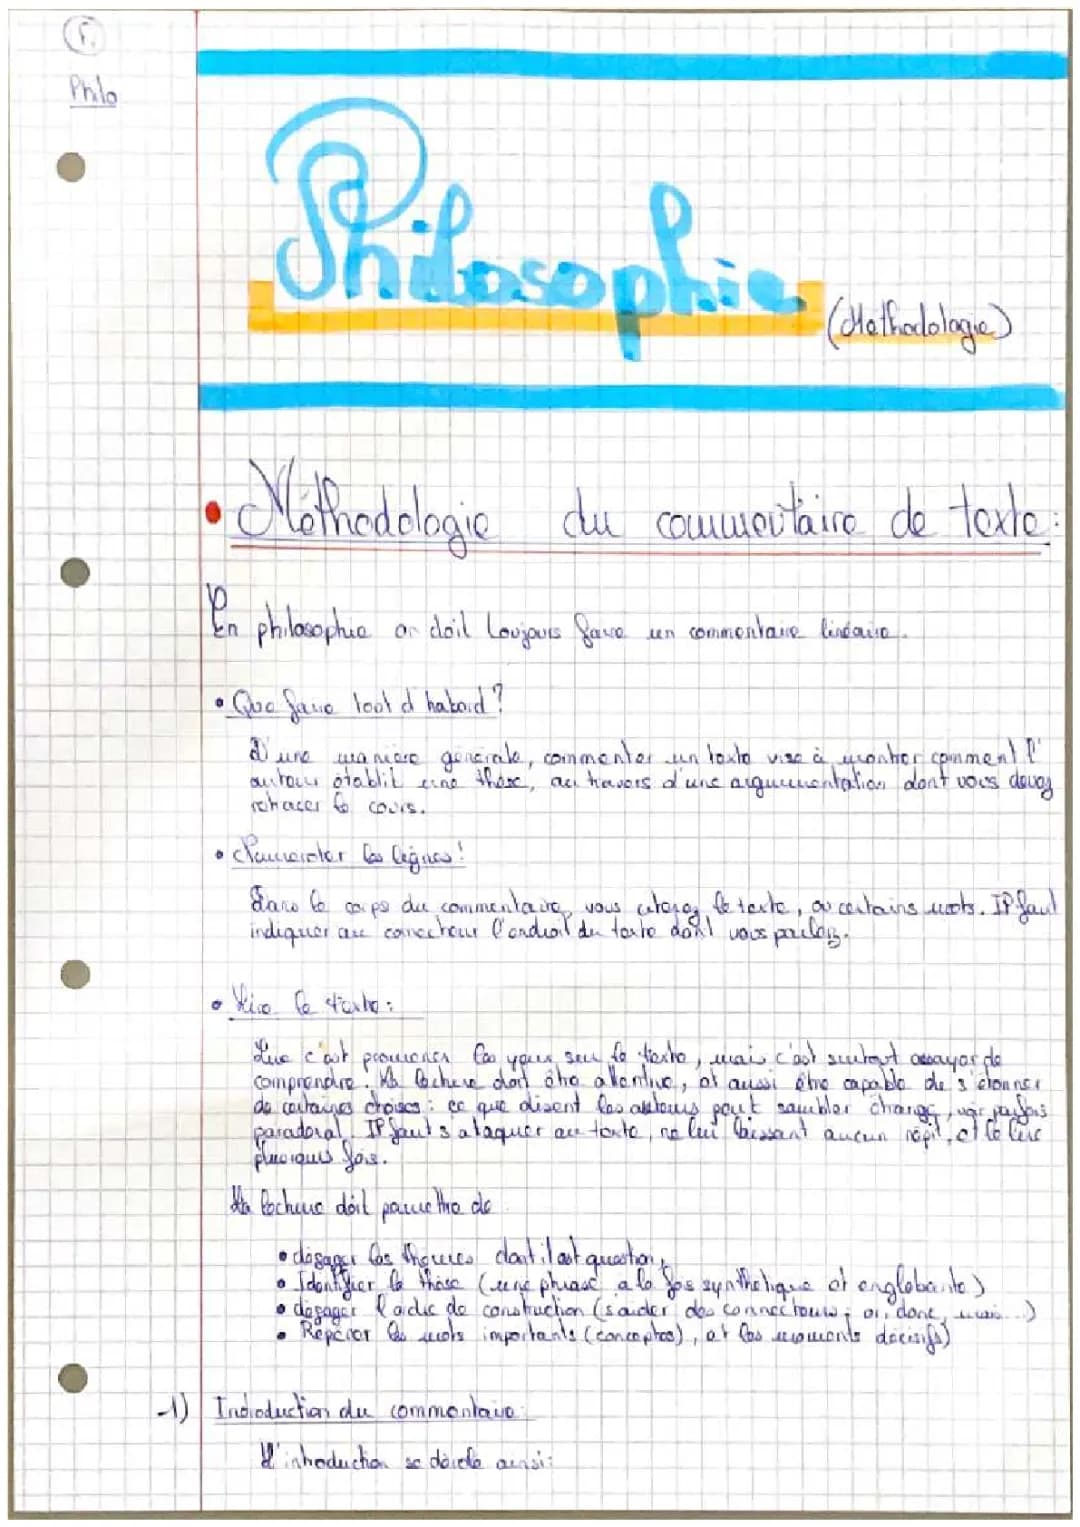 Philo
Philosophie
(Méthodologie)
• Méthodologie du commentaire de texte:
En philosophie on doit toujours faire un commentaire linéaire.
• Que faire tout d'habord?
D'une manière générale, commenter un texte vise à montrer comment l'
auteur établit une thèse, au travers d'une argumentation dont vous devez
retracer le cours.
• Numéroter les lignes!
Dans le corps du commentaire, vous citerez le texte, ou certains mots. Il faut
indiquer au correcteur l'endroit du texte dont vous parlez.
• Lire le texte:
Lire c'est promener les yeux sur le texte, mais c'est surtout essayer de
comprendre. La lecture doit être attentive, et aussi être capable de s'étonner
de certaines choses: ce que disent les auteurs peut sembler étrange, voir parfois
paradoxal. Il faut s'ataquer au texte, ne lui laissant aucun répit, et le lire
plusieurs fois.
La lecture doit permettre de
• dégager les thèmes dont il est question,
• Identifier la thèse (une phrase à la fois synthétique et englobante)
• dégager l'ordre de construction (s'aider des connecteurs; or, donc, mais...)
• Repérer les mots importants (concepts), et les moments décisifs)
1) Introduction du commentaire:
L'introduction se déroule ainsi: